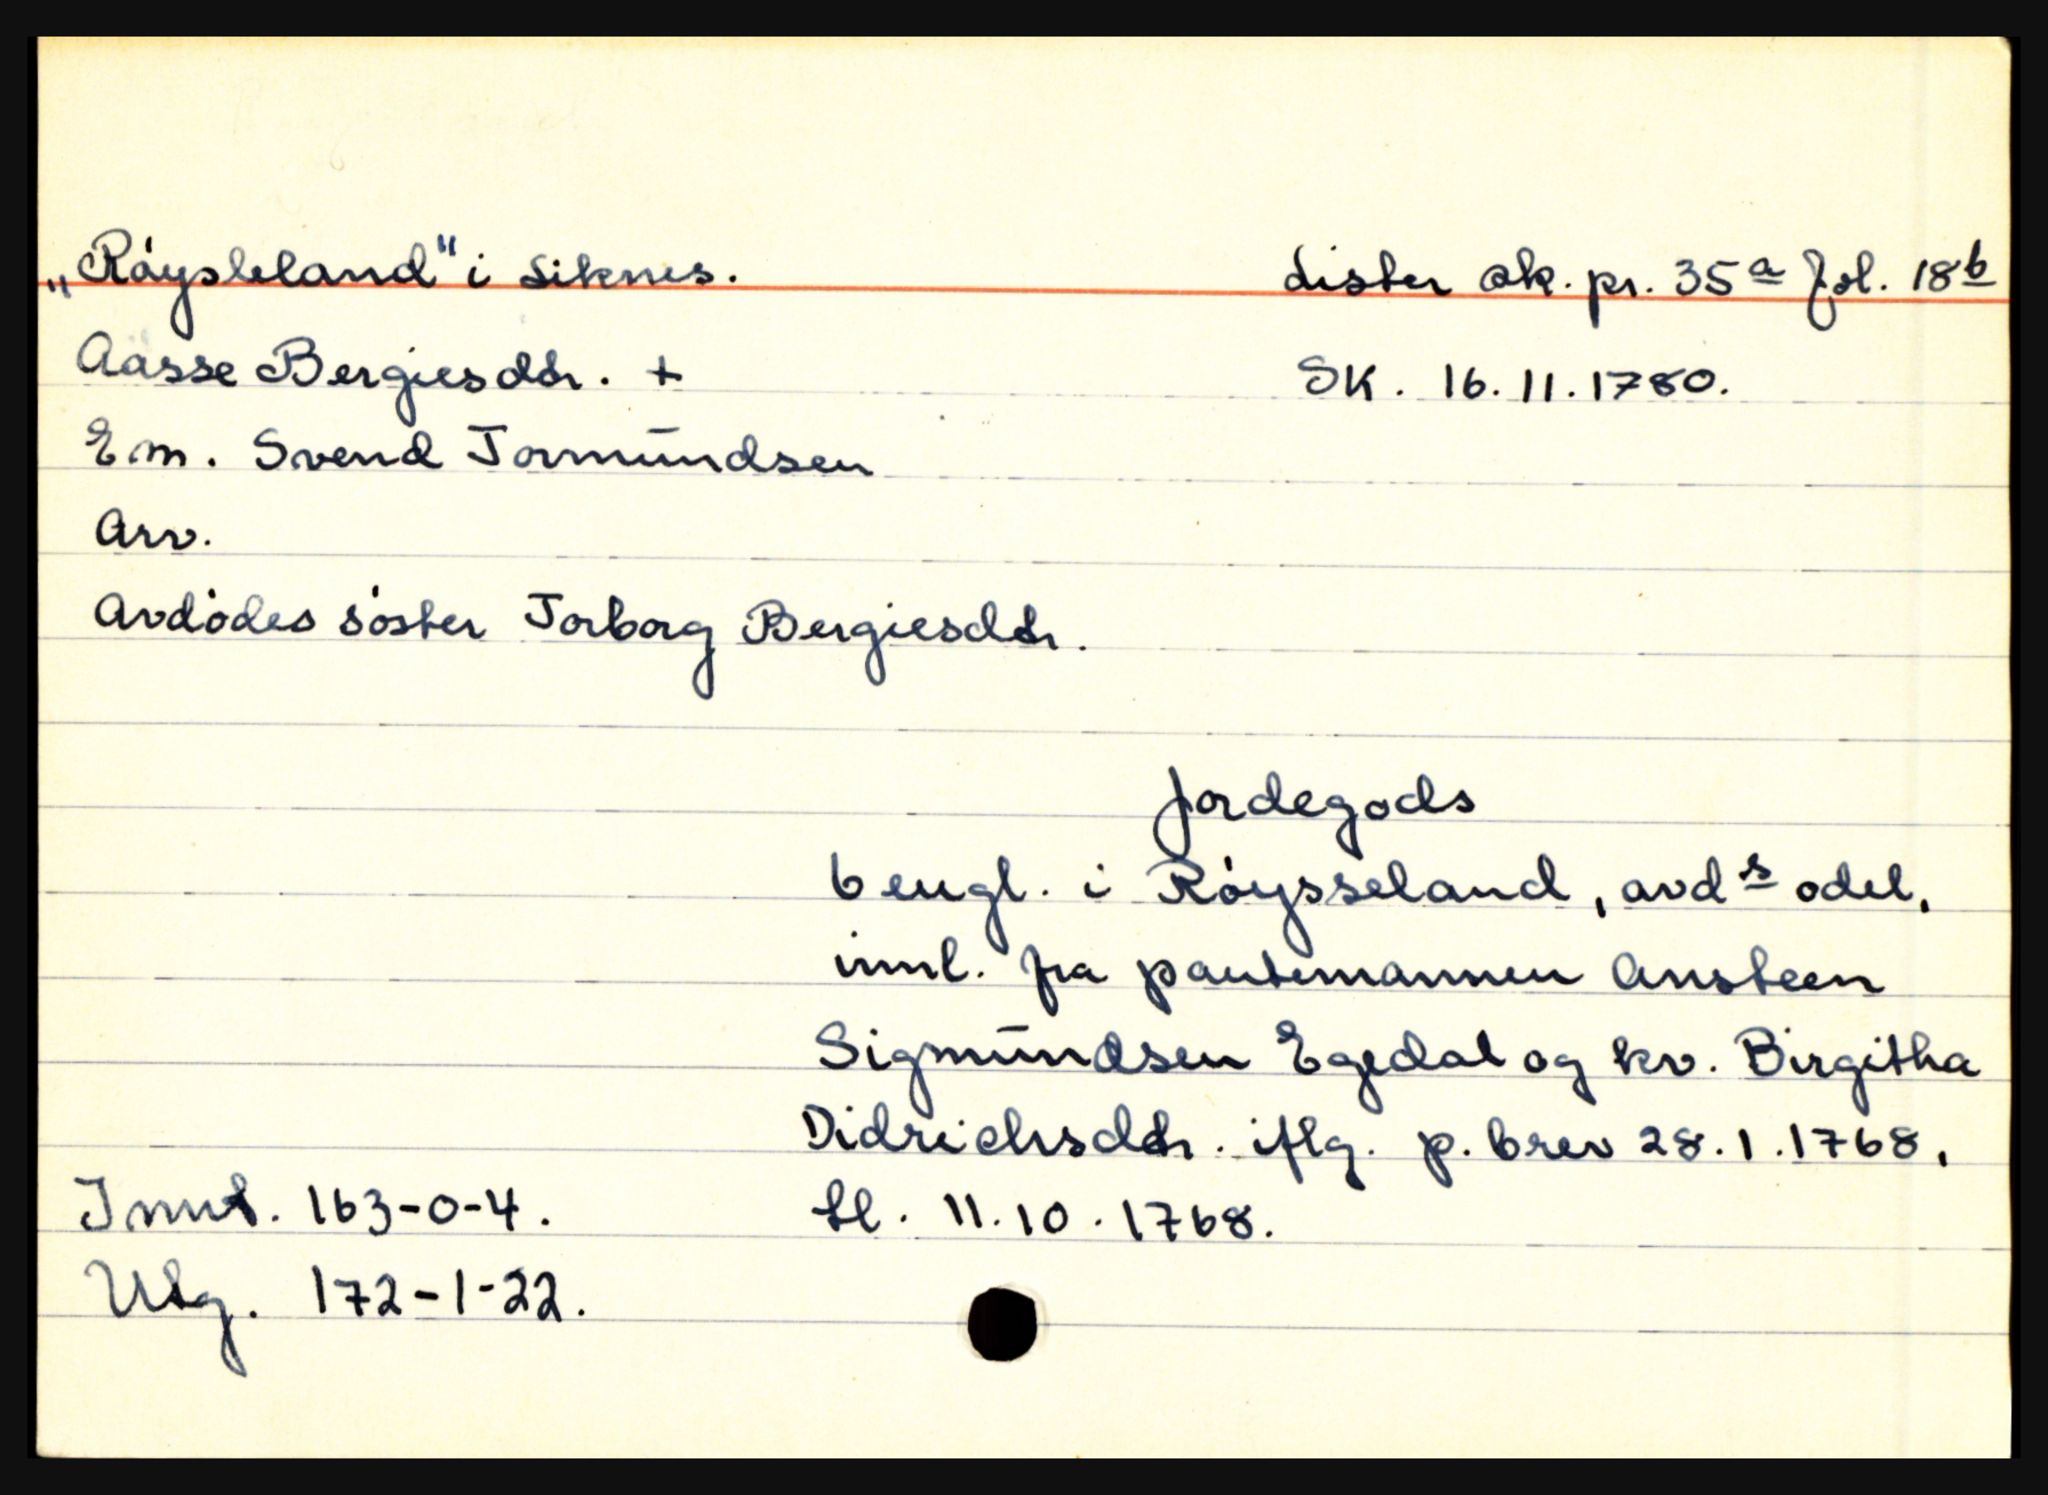 „Röysleland" i Siknes. Lister sk. pr. 35a fol. 18b
Aasse Bergiesdtr. + SK. 16.11.1780.
Em. Svend Tormundsen
Arv.
Avdödes söster Torborg Bergiesdtr.
Jordegods
6 engl. i Röysseland, avds odel,
innl. fra pantemannen Ansteen
Sigmundsen Egedal og kv. Birgitha
Didrichsdtr. iflg. p. brev 28.1.1768,
Innt. 163-0-4. tl. 11.10.1768.
Utg. 172-1-22.